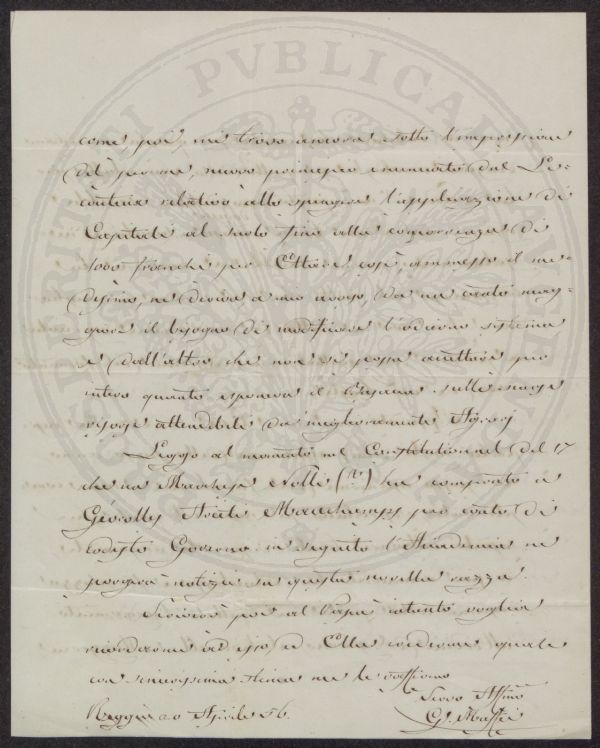 come poi, mi trovo ancora sotto l'impressione
del per me, nuovo principio enunciato dal Le-
couteux relativo allo spinger l'applicazione di
Capitale al suolo fino alla concorrenza di
1000 franchi per Ettare, così, ammesso il me-
desimo, ne deriva a mio avviso, da un canto mag-
giore il bisogno di modificare l'odierno sistema
e dall'altro che non si possa accettare per
intero quanto esponeva il sulle
risorse attendibili da miglioramenti Agrarj
Leggo al momento nel Constitutionnel del 17
che un Marchese Nolli ha comprato a
Gévrolles Arieti Mauchamps per conto di
codesto Governo in seguito l'Accademia ne
porgerà notizia su questa novella razza.
Scriverò poi al Papa intanto voglia
ricordarmi ad esso ed Ella credermi quale
con sincerissima stima me le raffermo
Servo Affmo
Reggio 20 Aprile 56.